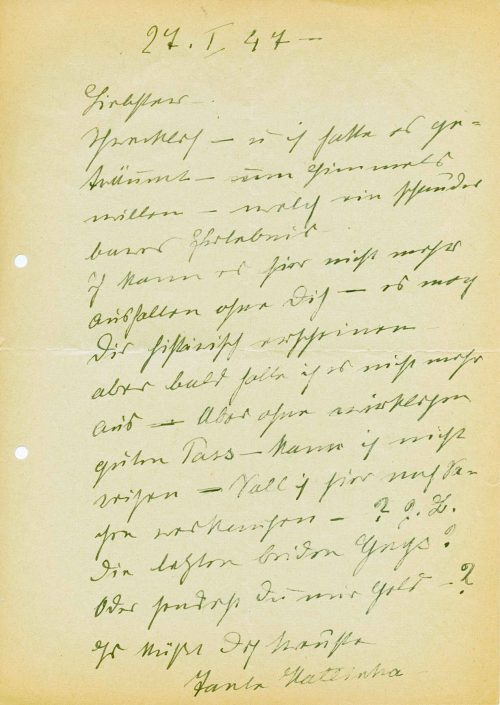 27. I 47 —
Liebster —
Schrecklich — u ich hatte es ge-
träumt — um Himmels
willen — welch ein schauder
bares Erlebnis
Ich kann es hier nicht mehr
aushalten ohne Dich — es mag
Dir hysterisch erscheinen
aber bald halte ich es nicht mehr
aus — Aber ohne wirklichen
guten Pass — kann ich nicht
reisen — Soll ich hier noch Sa-
chen verkaufen — ? z. B.
die letzten beiden Guys?
Oder sendest Du mir Geld — ?
Es küßt Dich
Deine